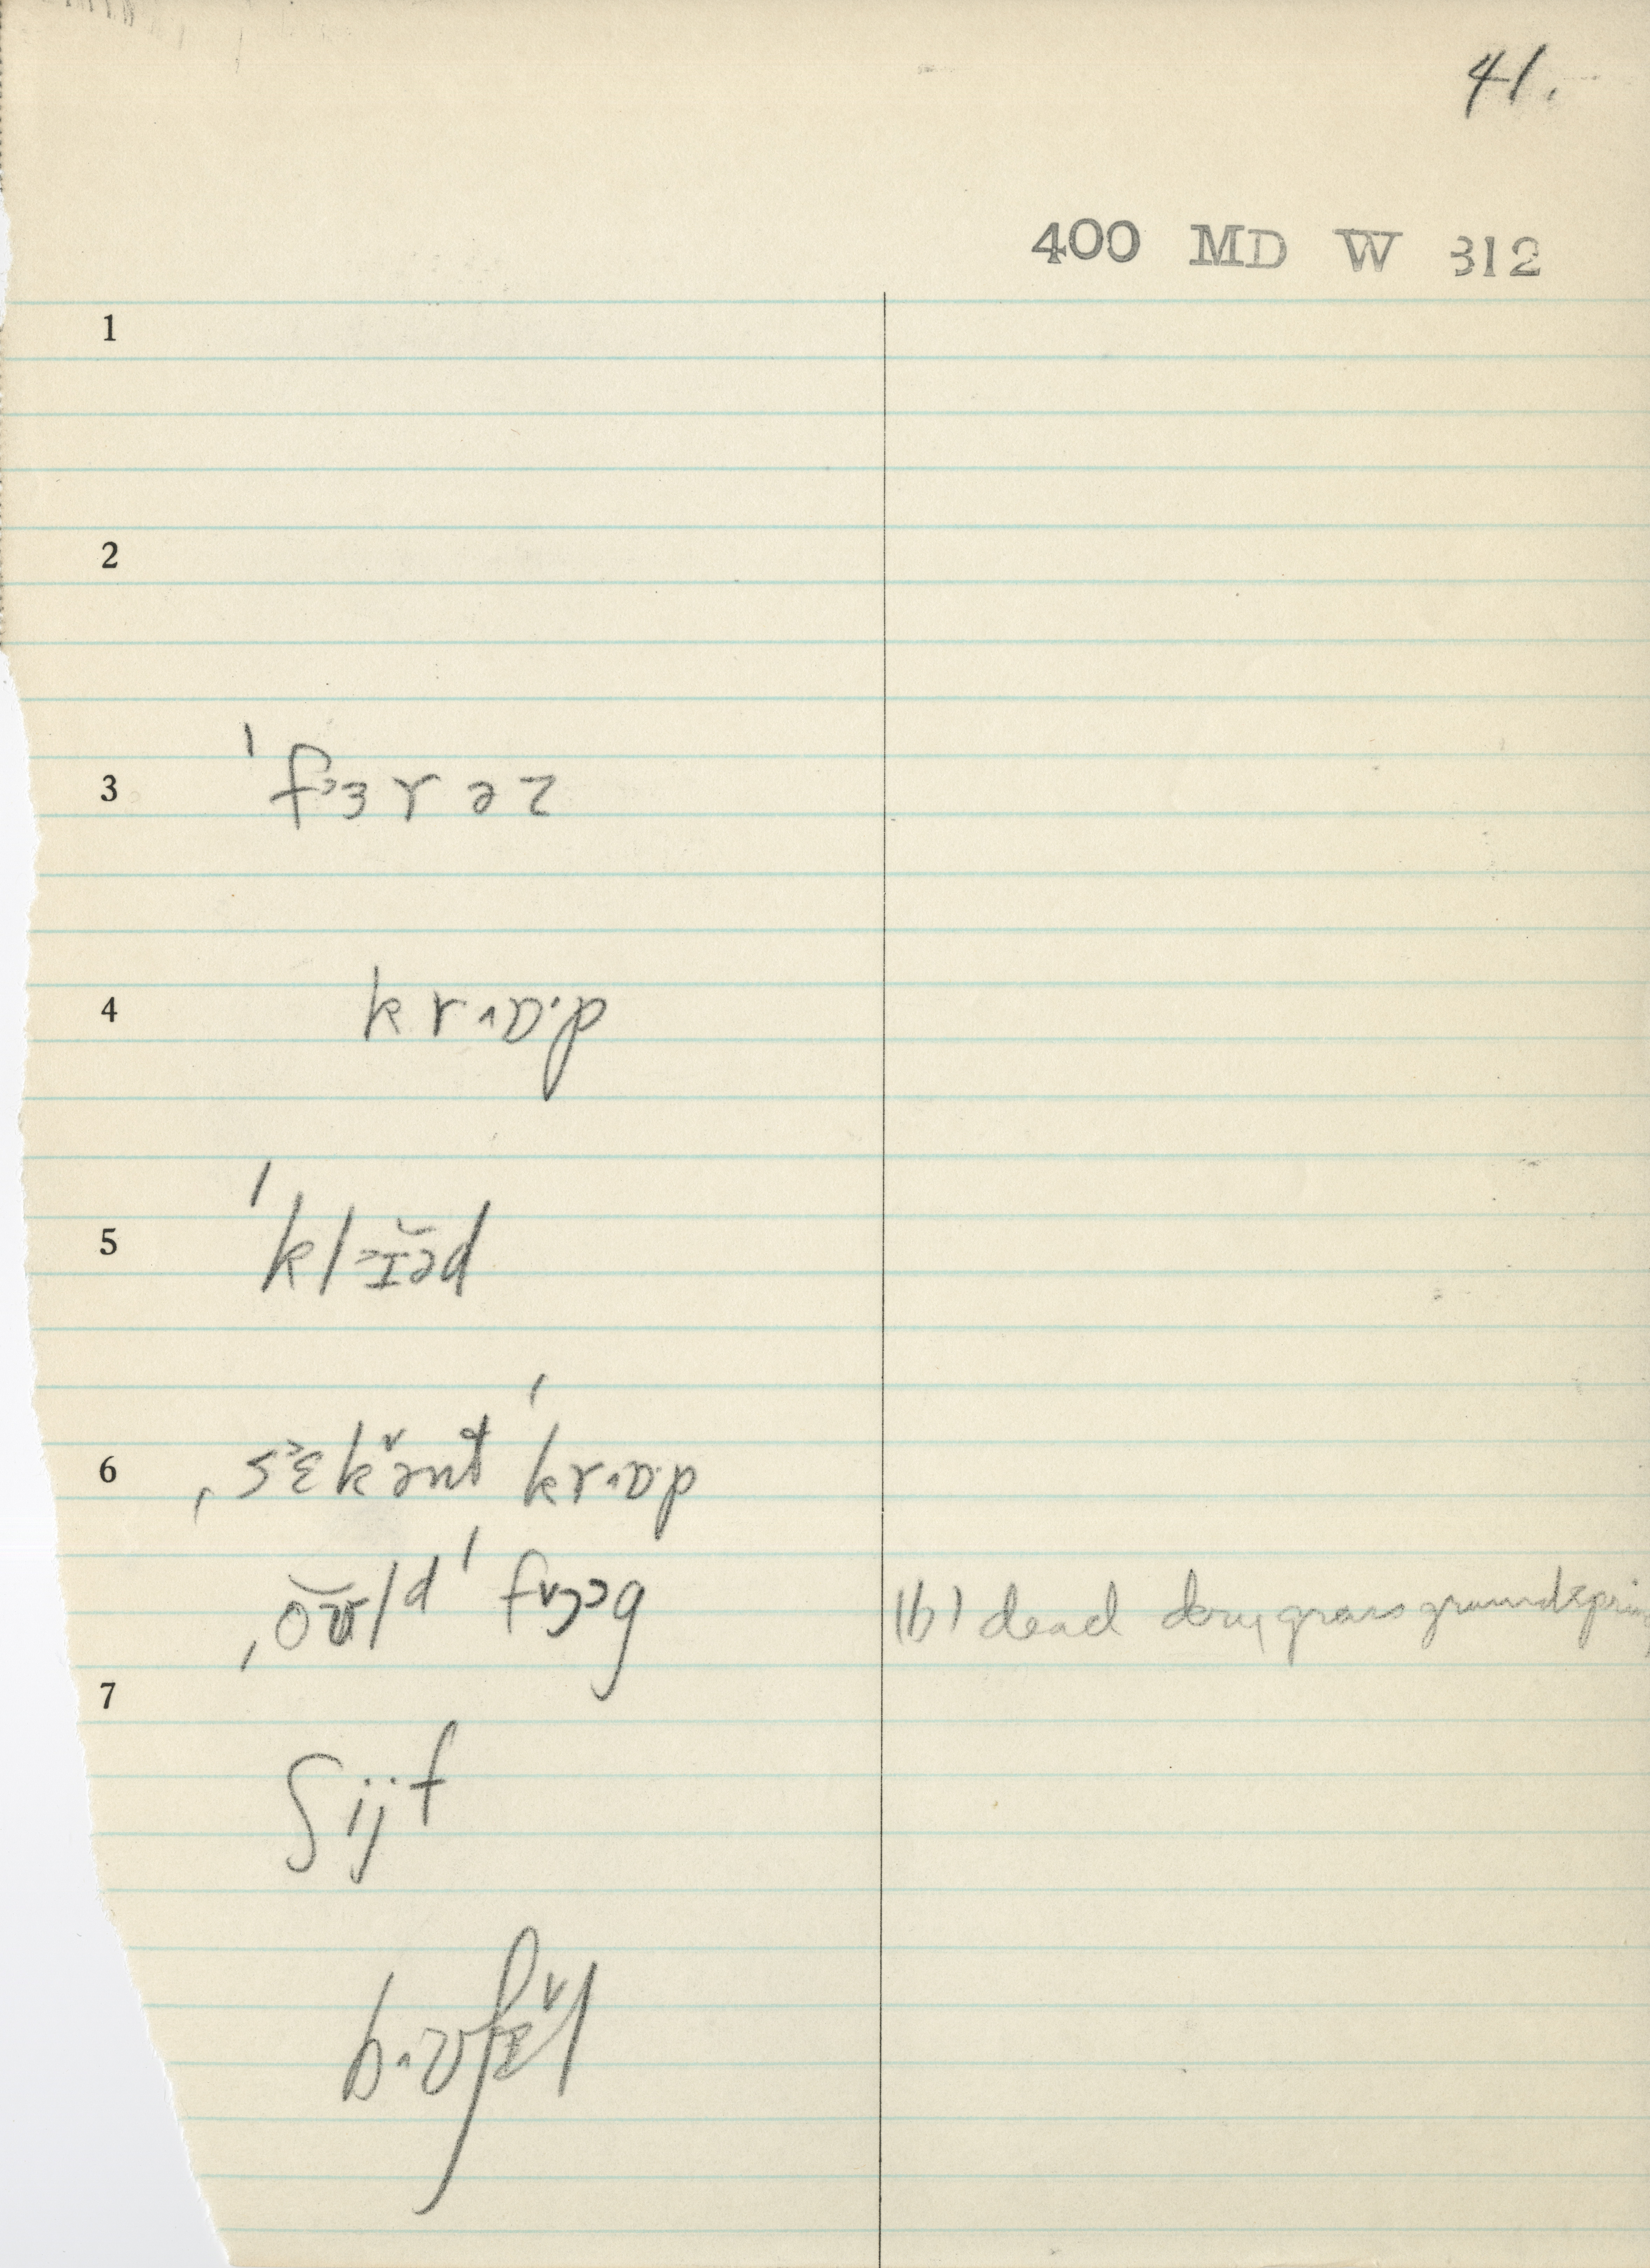 41.
400 MD W 312
1
2
3 ˈfɜrəz
4 krɒ·p
5 ˈklɪ̆əd
6 ˌsɛkənt ˈkrɒ·p
ˌoʊ̆lᵈ ˈfɔg (b) dead dry grass ground spring
7
ʃijf
bʊʃɛl